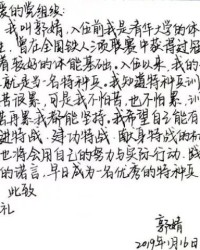 爱的党组织:
我叫郭婧,入伍前我是青年大学的体
生,曾在全国铁人三项联赛中获得过冠
有较好的体能基础。入伍以来,我的
就是当一名特种兵。我知道特种兵训
苦很累,可是我不怕苦,也不怕累,训
苦再累我都能坚持。我希望自己能有
进特战、建功特战、献身特战的机
也将会用自己的努力与实际行动,践
的诺言,早日成为一名优秀的特种兵
此致
礼
郭婧
2019年1月16日